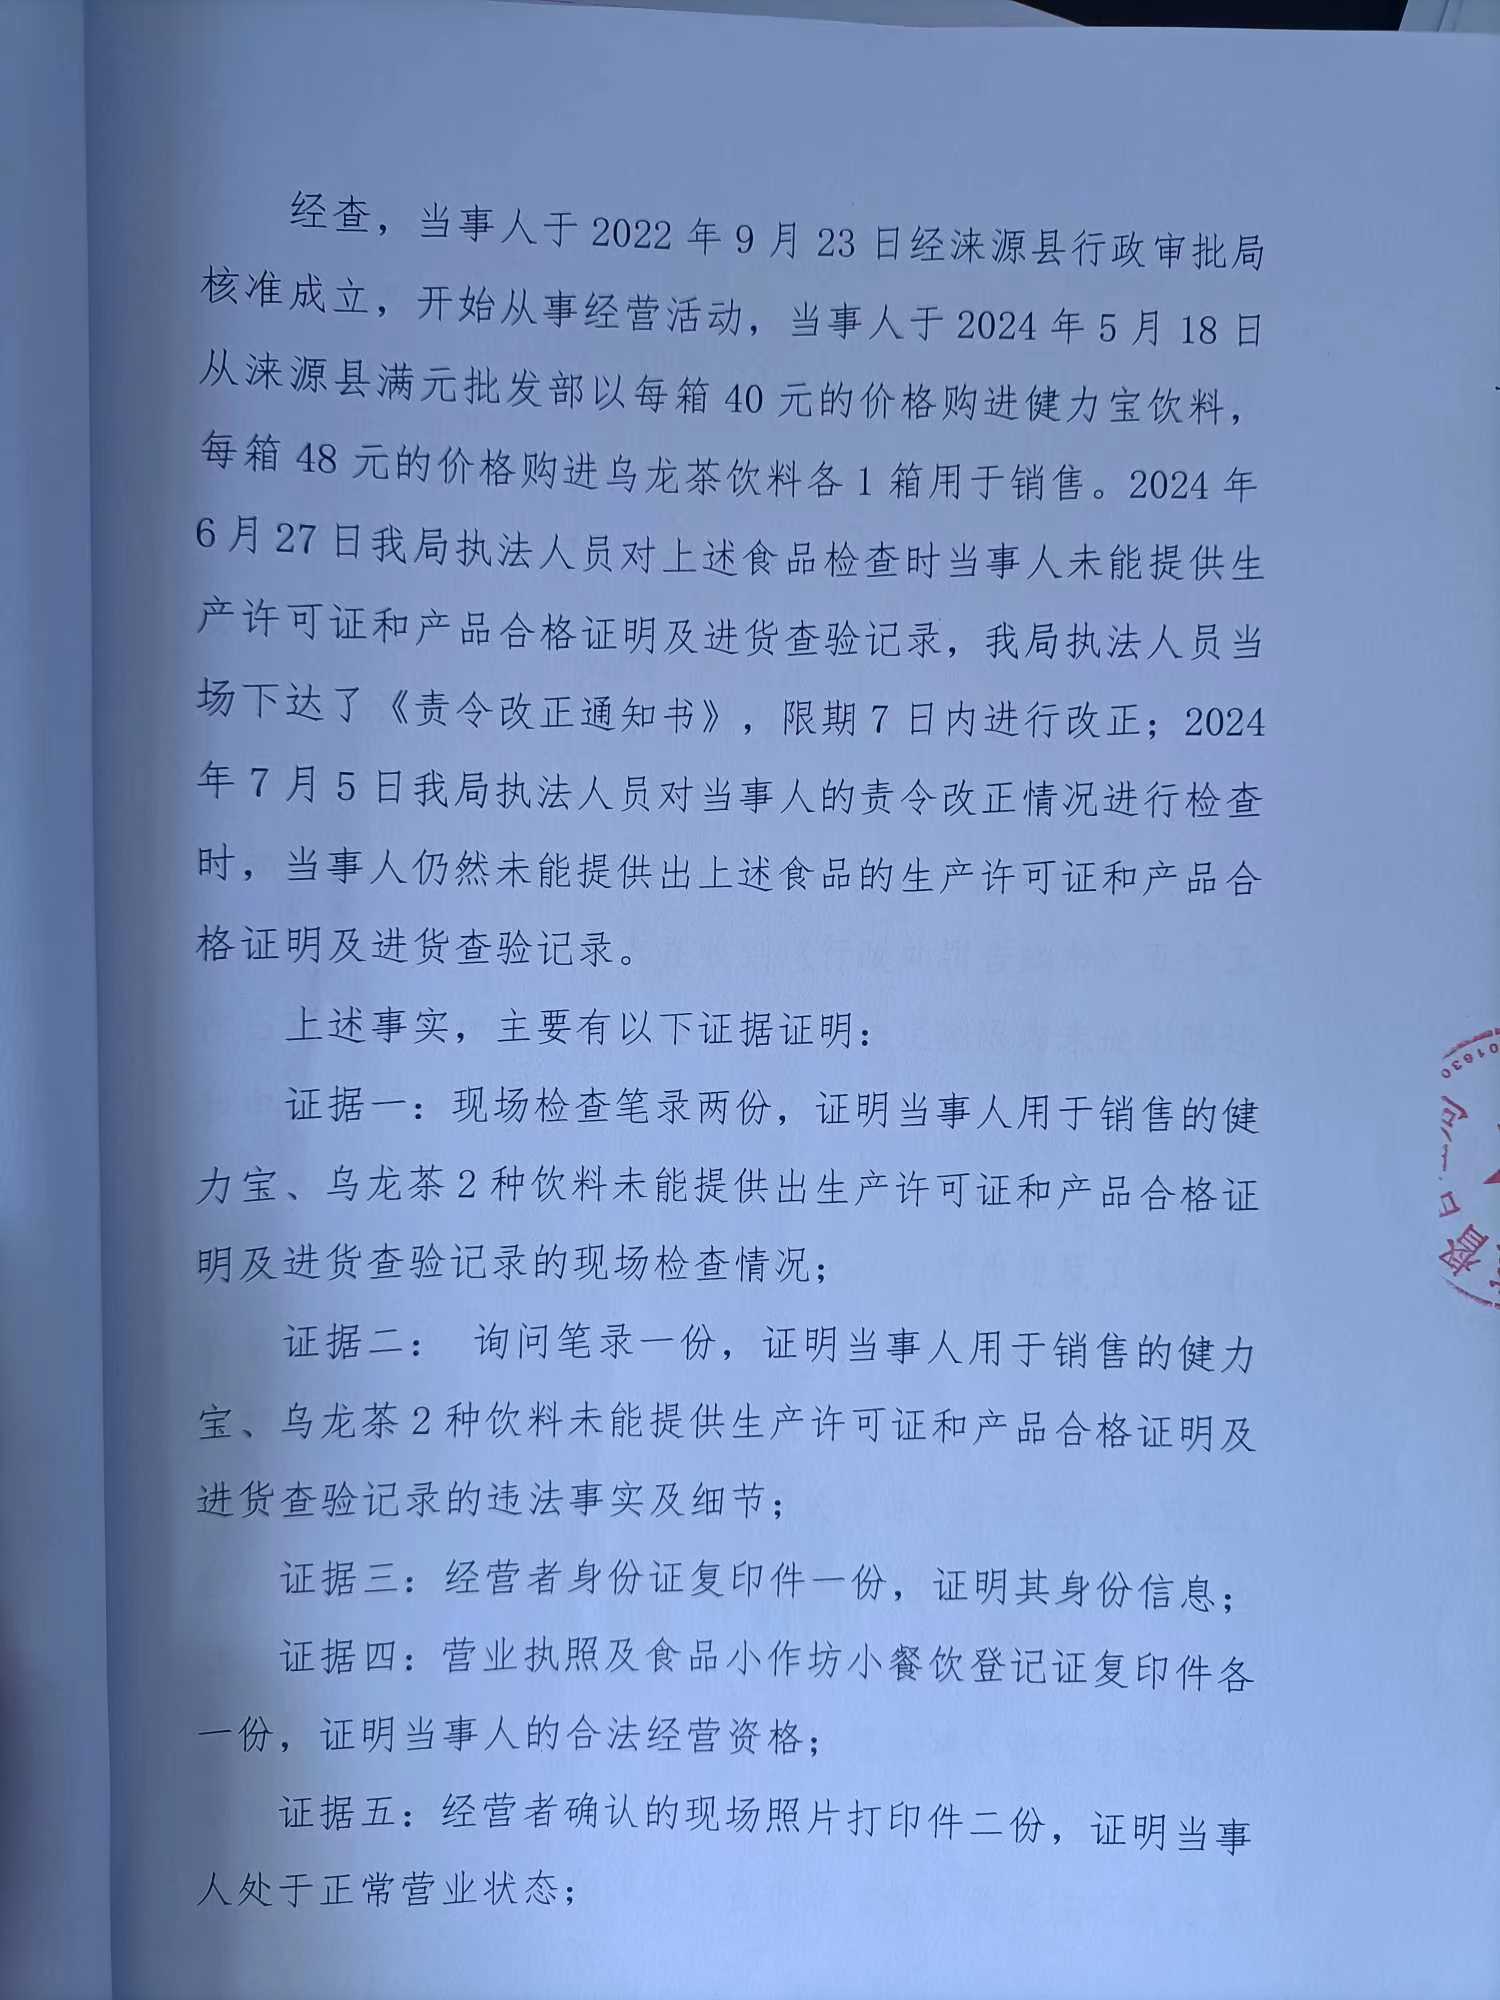 经查，当事人于 2022 年 9 月 23 日经涞源县行政审批局
核准成立，开始从事经营活动，当事人于 2024 年 5 月 18 日
从涞源县满元批发部以每箱 40 元的价格购进健力宝饮料，
每箱 48 元的价格购进乌龙茶饮料各 1 箱用于销售。2024 年
6 月 27 日我局执法人员对上述食品检查时当事人未能提供生
产许可证和产品合格证明及进货查验记录，我局执法人员当
场下达了《责令改正通知书》，限期 7 日内进行改正；2024
年 7 月 5 日我局执法人员对当事人的责令改正情况进行检查
时，当事人仍然未能提供出上述食品的生产许可证和产品合
格证明及进货查验记录。
上述事实，主要有以下证据证明：
证据一：现场检查笔录两份，证明当事人用于销售的健
力宝、乌龙茶 2 种饮料未能提供出生产许可证和产品合格证
明及进货查验记录的现场检查情况；
证据二： 询问笔录一份，证明当事人用于销售的健力
宝、乌龙茶 2 种饮料未能提供生产许可证和产品合格证明及
进货查验记录的违法事实及细节；
证据三：经营者身份证复印件一份，证明其身份信息；
证据四：营业执照及食品小作坊小餐饮登记证复印件各
一份，证明当事人的合法经营资格；
证据五：经营者确认的现场照片打印件二份，证明当事
人处于正常营业状态；
01630